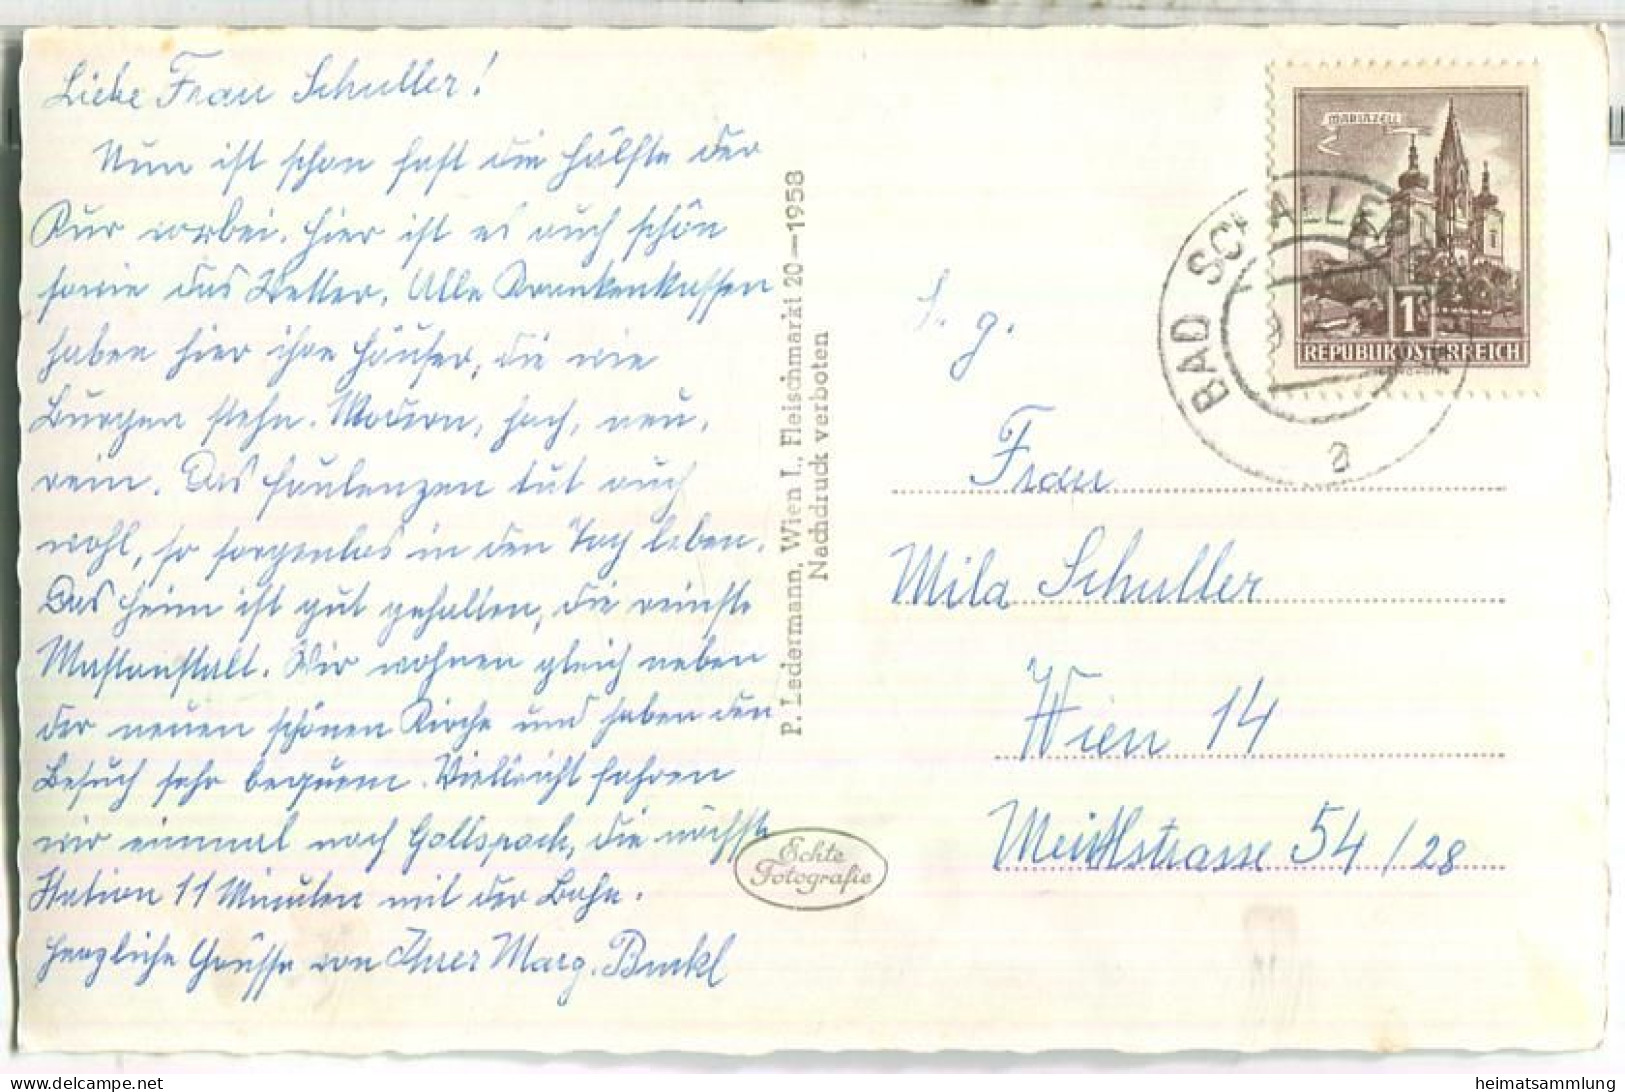 Liebe Frau Schuller!
Nun ist schon fast die Hälfte der
Kur vorbei. Hier ist es auch schön
sowie das Wetter. Alle Krankenkassen
haben hier ihre Häuser, die wie
Burgen stehn. Modern, hoch, neu,
rein. Das Faulenzen tut auch
wohl, so sorgenlos in den Tag leben.
Das Heim ist gut gehalten, die reinste
Mastanstalt. Wir wohnen gleich neben
der neuen schönen Kirche und haben den
Besuch sehr bequem. Vielleicht fahren
wir einmal nach Gallspach, die nächste
Station 11 Minuten mit der Bahn.
Herzliche Grüsse von Ihrer Marg.
P. Ledermann, Wien I., Fleischmarkt 20—1958
Nachdruck verboten
Echte
Fotografie
MARIAZELL
1S
REPUBLIK ÖSTERREICH
BAD SCHALLE
a
g.
Frau
Mila Schuller
Wien 14
54/28
heimatsammlung